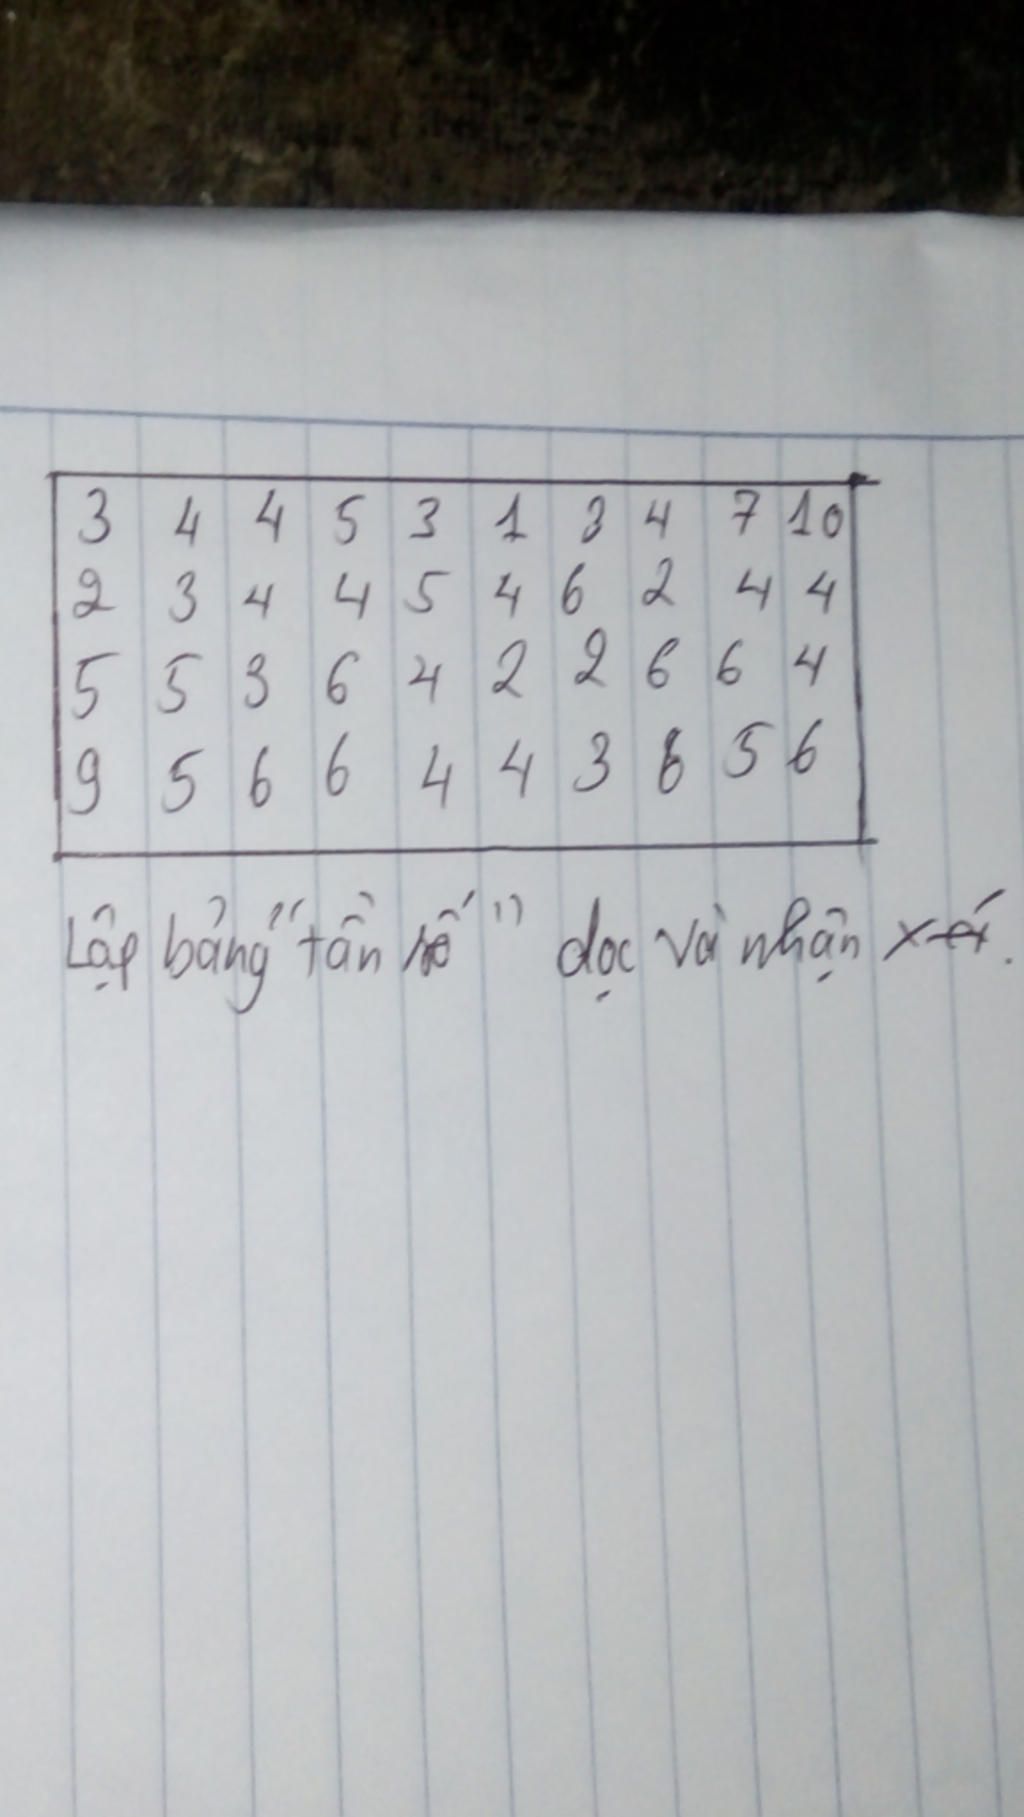 3 4 4 5 3 1 3 4 7 10
2 3 4 4 5 4 6 2 4 4
5 5 3 6 4 2 2 6 6 4
9 5 6 6 4 4 3 8 5 6
Lập bảng "tần số" dọc và nhận xét.